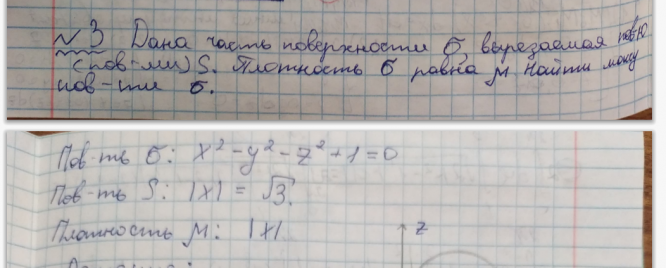 №3 Дана часть поверхности б, вырезаемая пов-ю
(пов-ми) S. Плотность б равна μ Найти массу
пов-ти б.
Пов-ть б: x² - y² - z² + 1 = 0
Пов-ть S: |x| = √3.
Плотность μ: |x|
z